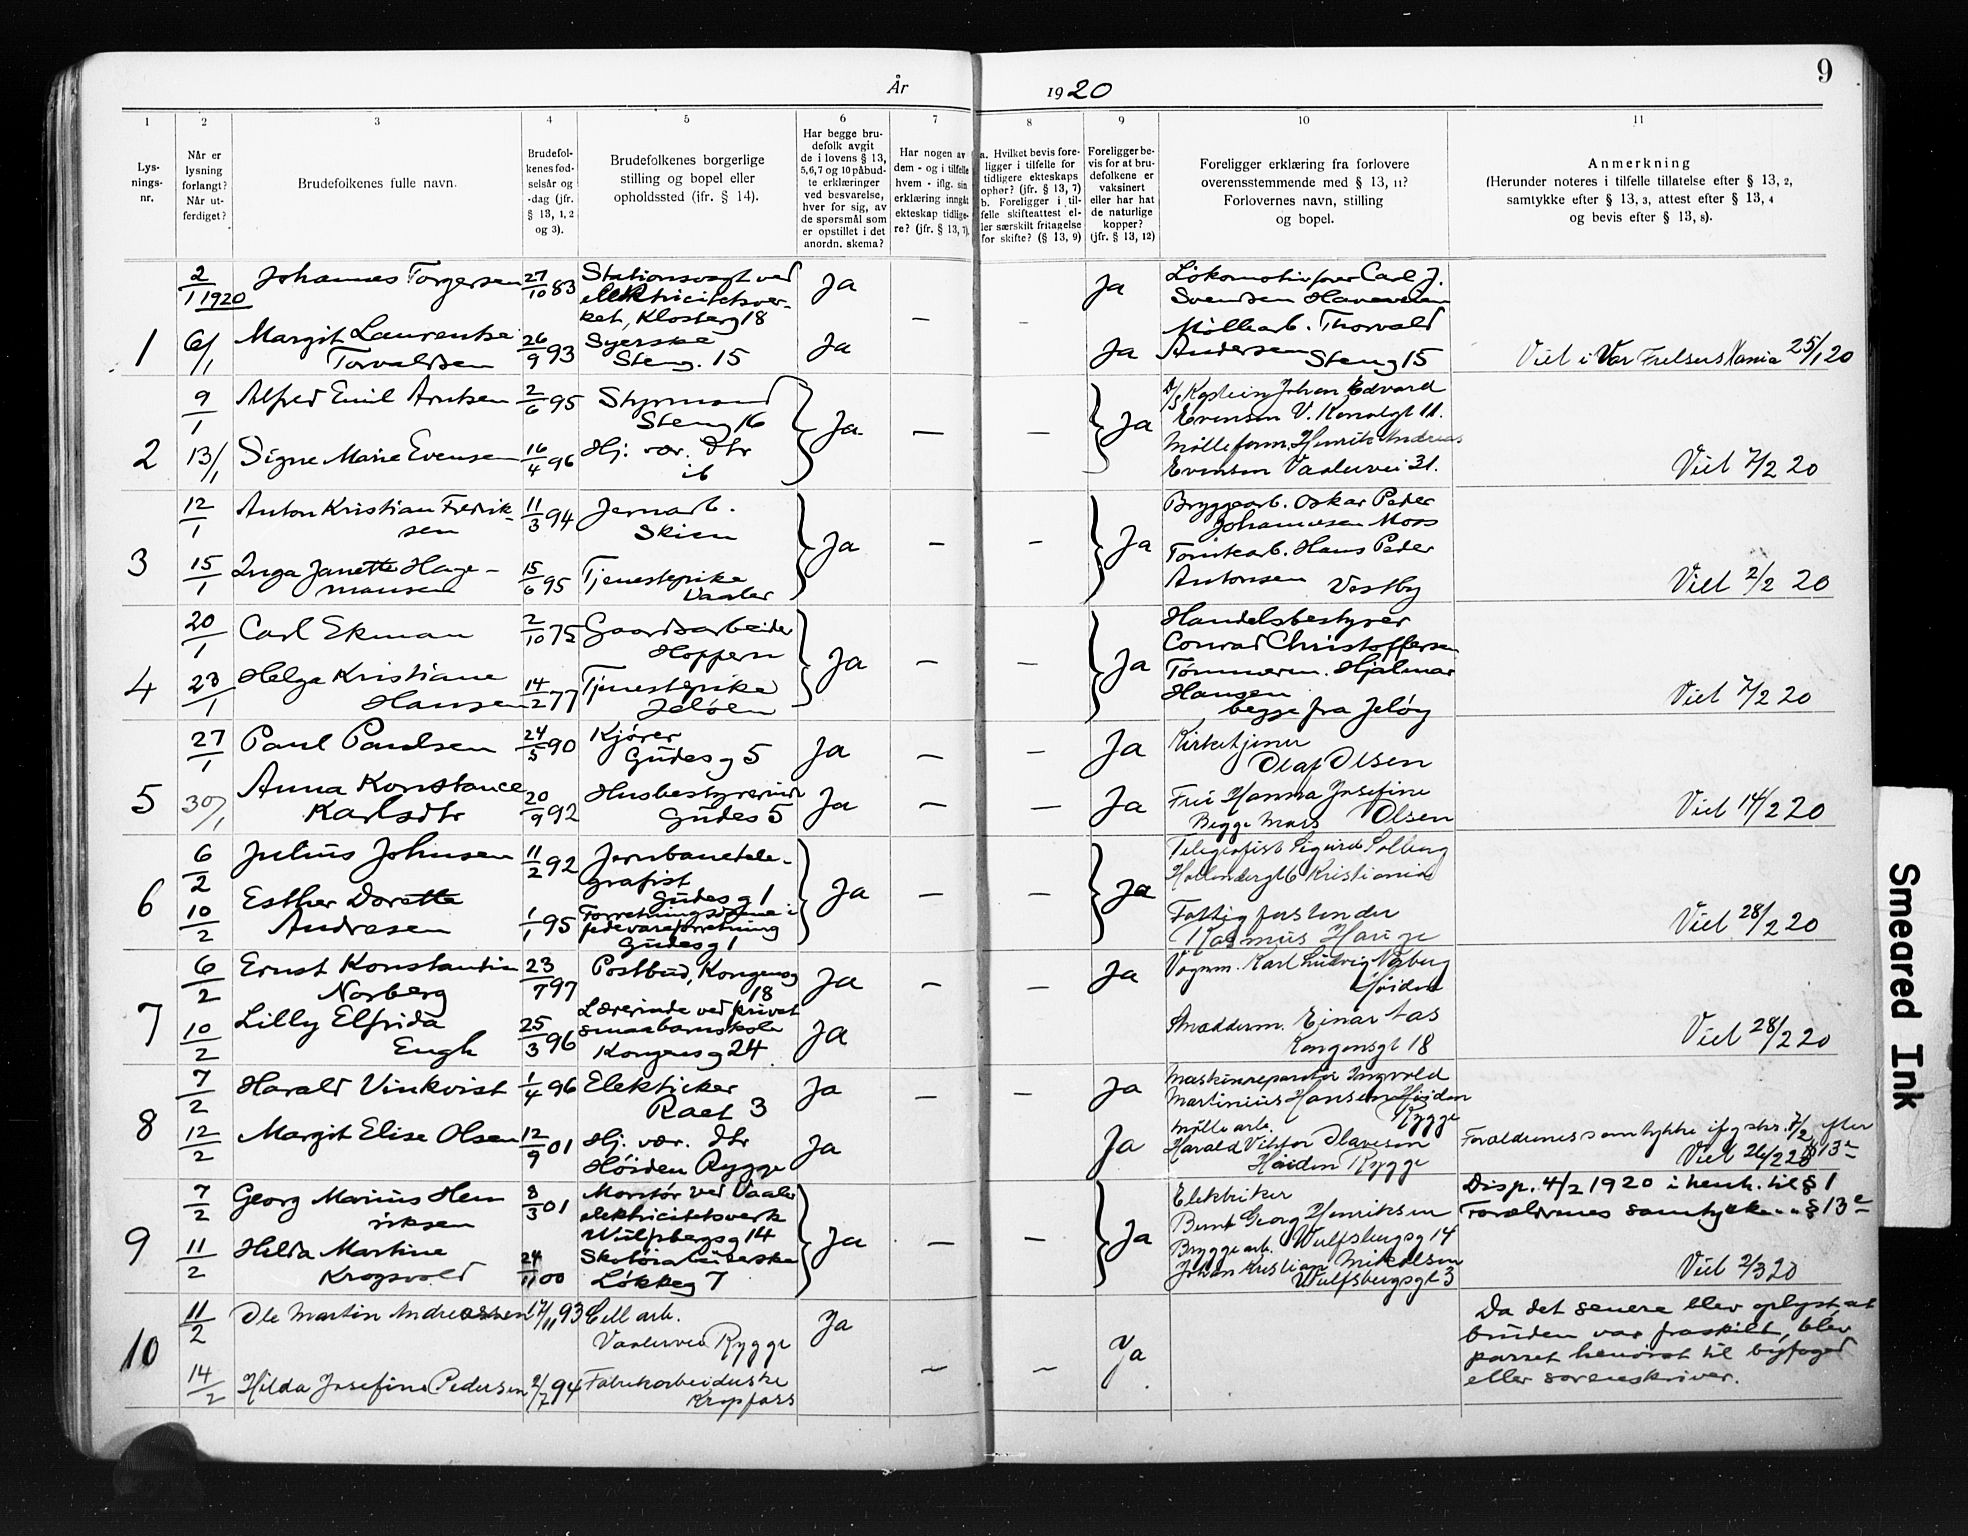 År 1920
9
1 2 3 4 5 6 7 8 9 10 11
Lys-
nings-
nr.
Når er
lysning
forlangt?
Når ut-
ferdiget?
Brudefolkenes fulle navn.
Brudefol-
kenes fød-
selsår og
-dag (jfr.
§ 13, 1, 2
og 3).
Brudefolkenes borgerlige
stilling og bopel eller
opholdssted (jfr. § 14).
Har begge bru-
defolk avgit
de i lovens § 13,
5, 6, 7 og 10 påbud-
te erklæringer
ved besvarelse,
hver for sig, av
de spørsmål som
er opstillet i det
anordn. skema?
Har nogen av
dem - og i tilfelle
hvem - iflg. sin
erklæring inngåt
ekteskap tidlige-
re? (jfr. § 13, 7).
a. Hvilket bevis fore-
ligger i tilfelle for
tidligere ekteskaps
ophør? (jfr. § 13, 7)
b. Foreligger i til-
felle skifteattest el-
ler særskilt fritagelse
for skifte? (§ 13, 9)
Foreligger be-
vis for at bru-
defolkene er
vaksinert
eller har hat
de naturlige
kopper?
(jfr. § 13, 12)
Foreligger erklæring fra forlovere
overensstemmende med § 13, 11?
Forlovernes navn, stilling
og bopel.
Anmerkning
(Herunder noteres i tilfelle tillatelse efter § 13, 2,
samtykke efter § 13, 3, attest efter § 13, 4
og bevis efter § 13, 8).
1
2/1 1920 Johannes Torgersen 27/10 83 Stationsvagt ved
elektricitetsver-
ket, Klosterg 18
Ja — — Ja
Lokomotivfører Carl J.
Svendsen Haveveien
6/1 Margit Laurentse
Torvaldsen 26/9 93 Syerske
Steng. 15
Ja Ja
Møllearb. Thorvald
Andersen Steng 15
Viet i Vor Frelsers Kania 25/1 20
2
9/1 Alfred Emil Arntsen 2/6 95 Styrmand
Steng 16
Ja — — Ja
D/S Kaptein Johan Edvard
Evensen V. Kanalgt 11.
13/1 Signe Marie Evensen 16/4 96 Hj. vær. Dtr
ib
Mølleform. Henrik Andreas
Evensen Vaalervei 31.
Viet 7/2 20
3
12/1 Anton Kristian Fredrik-
sen 11/3 94 Jernarb.
Skien
Ja — — Ja
Bryggearb. Oskar Peder
Johannesen Moss
15/1 Inga Janette Hage-
mansen 15/6 95 Tjenestepike
Vaaler
Tomtearb. Hans Peder
Antonsen Vestby
Viet 2/2 20
4
20/1 Carl Ekman 2/10 75 Gaardsarbeider
Hoppern
Ja — — Ja
Handelsbestyrer
Conrad Christoffersen
23/1 Helga Kristiane
Hansen 14/2 77 Tjenestepike
Jeløen
Tømmerm. Hjalmar
Hansen
begge fra Jeløy
Viet 7/2 20
5
27/1 Paul Paulsen 24/5 90 Kjører
Gudesg 5
Ja — — Ja
Kirketjener
Olaf Olsen
30/1 Anna Konstance
Karlsdtr 20/9 92 Husbestyrerinde
Gudes 5
Ja — — Ja
Frú Hanna Josefine
Olsen
Begge Moss
Viet 14/2 20
6
6/2 Julius Johnsen 11/2 92 Jernbanetele-
grafist
Gudesg 1
Ja — — Ja
Telegrafist Sigurd Solberg
Kristiania
10/2 Esther Dorette
Andresen 1/1 95 Forretningsdame i
fedevareforretning
Gudesg 1
Fattigforstander
Rasmus Hauge
Viet 28/2 20
7
6/2 Ernst Konstantin
Norberg 23/7 97 Postbud, Kongensg
18
Ja — — Ja
Vognm. Karl Ludvig Norberg
Høiden
10/2 Lilly Elfrida
Engh 25/3 96 Lærerinde ved privat
smaabarnskole
Kongensg 24
Ja
Snedkerm. Einar Aas
Kongensgt 18
Viet 28/2 20
8
7/2 Harald Vinkvist 1/4 96 Elektiker
Raet 3
Ja — — Ja
Maskinreparatør Ingvald
Martinius Hansen Høiden
Rygge
12/2 Margit Elise Olsen 12/9 01 Hj. vær. dtr
Høiden Rygge
Ja Ja
Møllearb.
Harald Viktor Olavesen
Høiden Rygge
Forældrenes samtykke ifg skr. 7/2 efter
§ 13
Viet 26/2 20
9
7/2 Georg Marius Hen
riksen 8/3 01 Montør ved Vaaler
elektricitetsverk
Wulfsbergsg 14
Ja — — Ja
Elektriker
Bernt Georg Henriksen
Wulfsbergsg 14
11/2 Hilda Martine
Krogsvold 24/11 00 Skotøiarbeiderske
Løkkeg 7
Bryggearb.
Johan Kristian Mikalsen
Wulfsbergsgt 3
Disp. 4/2 1920 i henh. til § 1
Forældrenes samtykke " " § 13
Viet 2/3 20
10
11/2 Ole Martin Andreassen 17/11 93 Cell arb.
Vaalervei Rygge
Ja — — Ja
14/2 Hilda Josefine Pedersen 2/7 94 Fabrikarbeiderske
Kropfors
Da det senere blev oplyst at
bruden var fraskilt, blev
parret henvist til byfoged
eller sorenskriver.
Smeared Ink